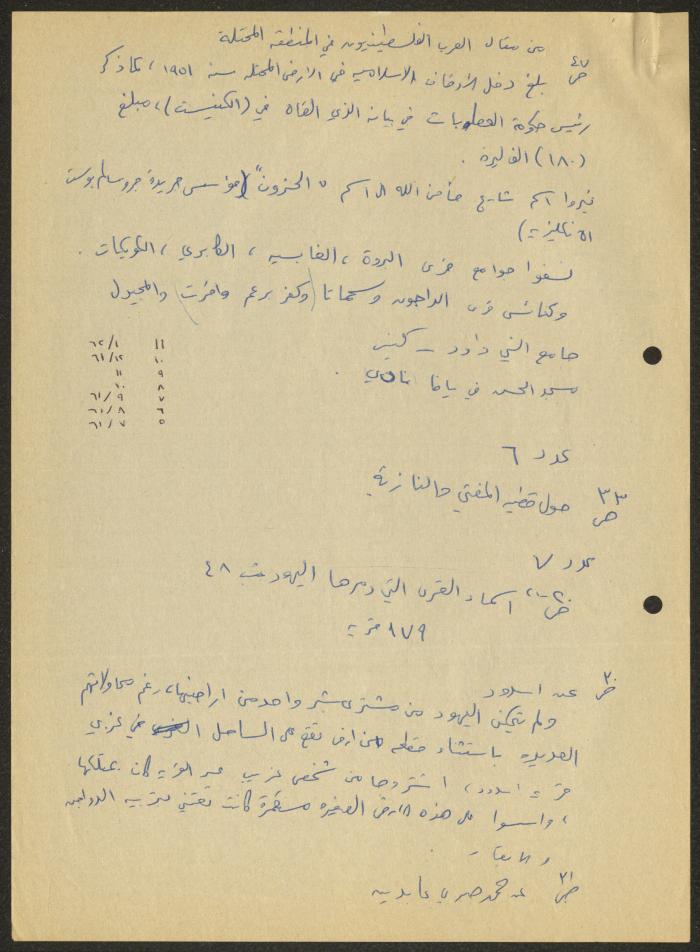 من مقال العرب الفلسطينيون في المنطقة المحتلة
ص ٤٧ بلغ دخل الأوقاف الاسلامية في الارض المحتلة سنة ١٩٥١ ، كما ذكر
رئيس حكومة العصابات في بيانه الذي القاه في (الكنيست) ، مبلغ
(١٨٠) الف ليرة .
غيروا اسم شارع مأمن الله الى اسم " اجرون" (مؤسس جريدة جروسالم بوست
الانكليزية)
نسفوا جوامع قرى البروة ، الغابسيه ، الكابري ، الكويكات .
وكنائس قرى الدامون وسحماتا (وكفر برعم واقرت) والمجيدل
جامع النبي داود – كنيس
مسجد الحسن في يافا نادي .
١١ ٦٢/١
١٠ ٦١/١٢
٩ ١١
٨ ١٠
٧ ٦١/٩
٦ ٦١/٨
٥ ٦١/٧
عدد ٦
ص ٣٣ حول قضية المفتي والنازية
عدد ٧
اسماء القرى التي دمرها اليهود ٤٨
قرية
ص ٢٠ عن اسدود
ولم يتمكن اليهود من مشترى شبر واحد من اراضيها ، رغم محاولاتهم
العديدة باستثناء قطعة من ارض تقع على الساحل في غربي
قرية اسدود ، اشتروها من شخص غريب عن القرية كان يمتلكها
، واسسوا على هذه الارض الصغيرة مستعمرة كانت تعتني بتربية الدواجن
والابقار .
ص ٢١ عن محمد صبري عابدين